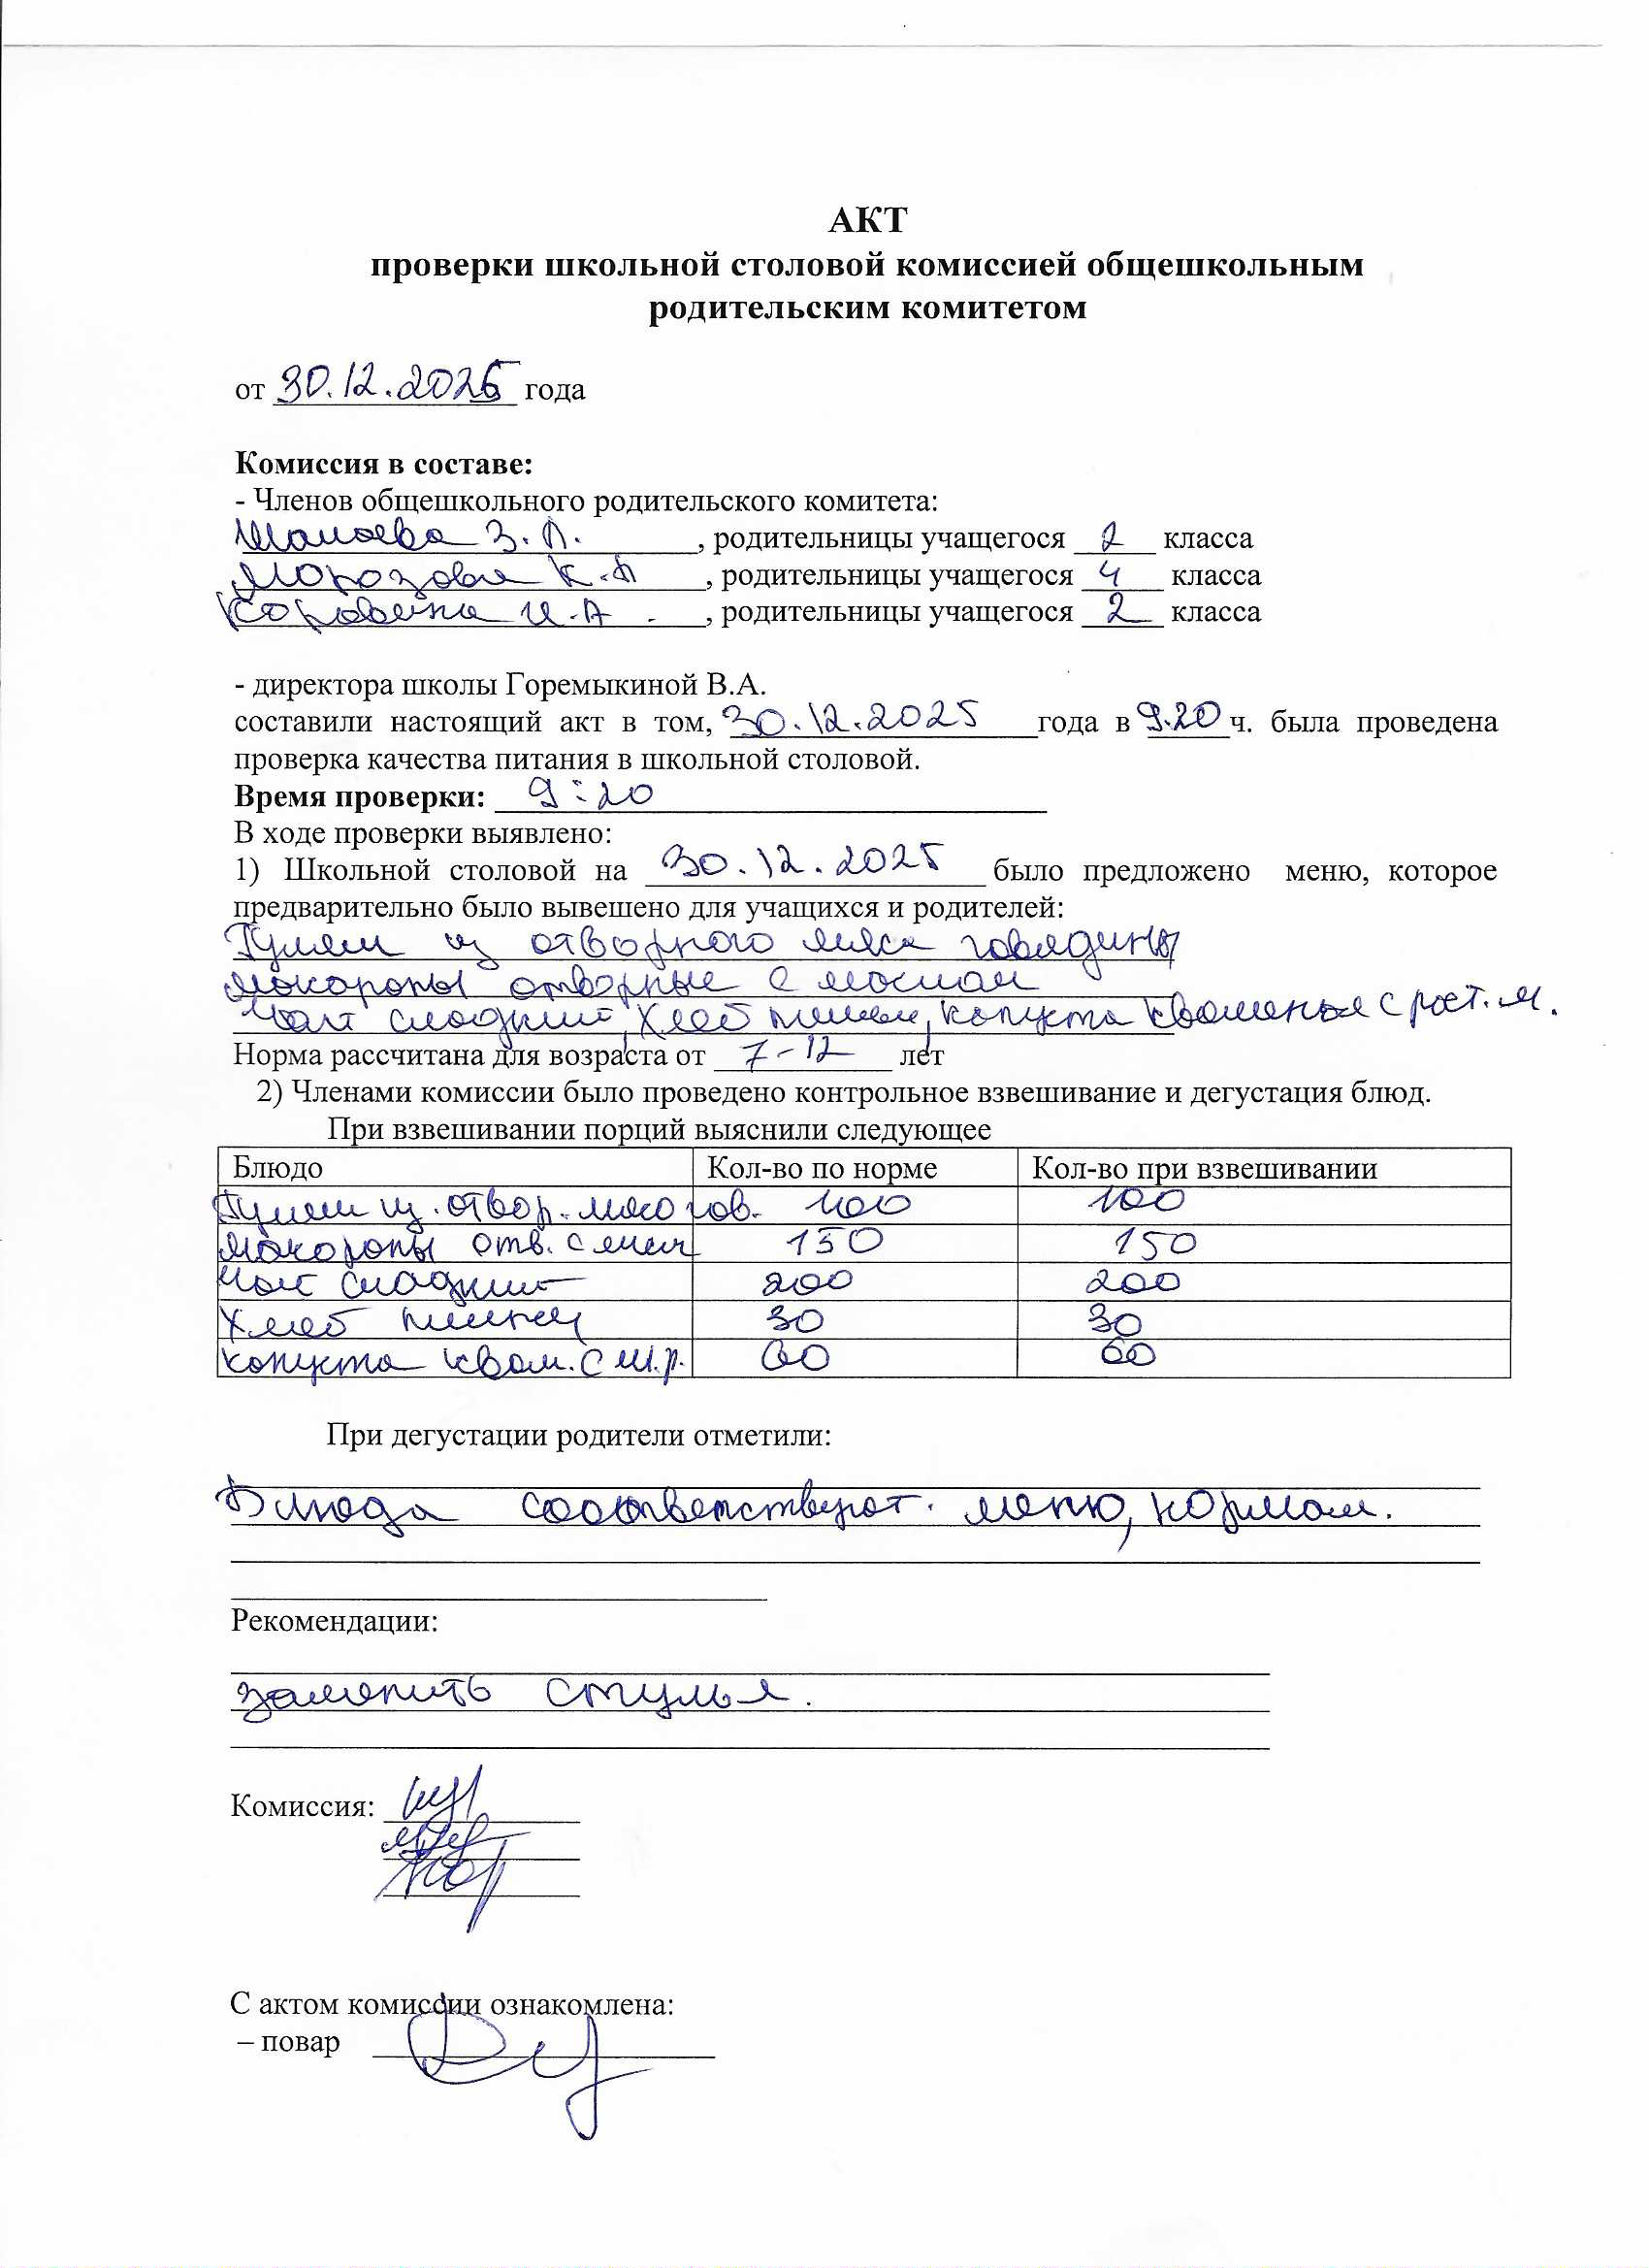 АКТ
проверки школьной столовой комиссией общешкольным
родительским комитетом
от 30.12.2025 года
Комиссия в составе:
- Членов общешкольного родительского комитета:
З. Л. , родительницы учащегося 2 класса
Морозова К.А , родительницы учащегося 4 класса
Коровина И.А , родительницы учащегося 2 класса
- директора школы Горемыкиной В.А.
составили настоящий акт в том, 30.12.2025 года в 9.20 ч. была проведена
проверка качества питания в школьной столовой.
Время проверки: 9:20
В ходе проверки выявлено:
1) Школьной столовой на 30.12.2025 было предложено меню, которое
предварительно было вывешено для учащихся и родителей:
Гуляш из отворного мяса говядины
макароны отворные с маслом
Чай сладкий, хлеб пшен, капуста квашеная с раст. м.
Норма рассчитана для возраста от 7-12 лет
2) Членами комиссии было проведено контрольное взвешивание и дегустация блюд.
При взвешивании порций выяснили следующее
Блюдо Кол-во по норме Кол-во при взвешивании
Гуляш из. отвор. мяса гов. 100 100
макароны отв. с 150 150
Чай сладкий 200 200
Хлеб 30 30
капуста кваш. с 60 60
При дегустации родители отметили:
Блюда соответствуют меню, нормам.
Рекомендации:
заменить стулья.
Комиссия:
С актом комиссии ознакомлена:
– повар